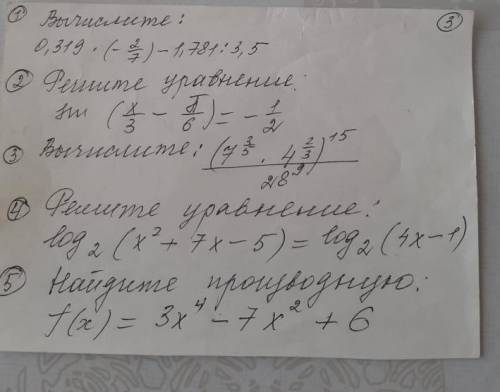 ① Вычислите: ③
0,319 · (-2/7) - 1,781 : 3,5
② Решите уравнение:
sin (x/3 - π/6) = - 1/2
③ Вычислите: (7^(3/5) · 4^(2/3))^15 / 28^9
④ Решите уравнение:
log₂ (x² + 7x - 5) = log₂ (4x - 1)
⑤ Найдите производную:
f(x) = 3x⁴ - 7x² + 6